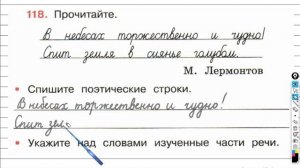 118. Прочитайте.
В небесах торжественно и чудно!
Спит земля в сиянье голубом.
М. Лермонтов
• Спишите поэтические строки.
В небесах торжественно и чудно!
Спит зем
• Укажите над словами изученные части речи.